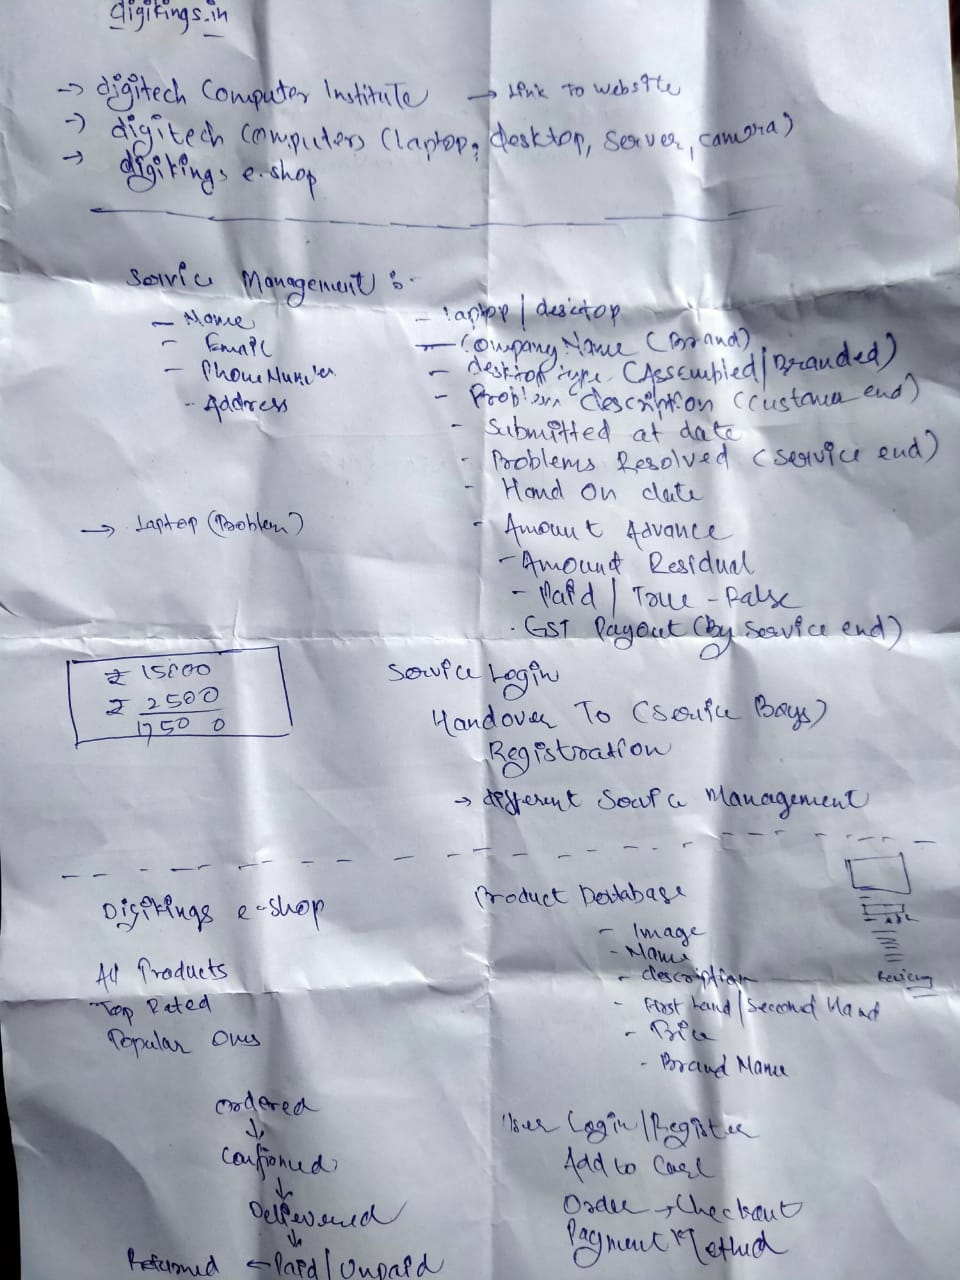 digikings.in
→ digitech Computer Institute → Link To website
→ digitech Computers (laptop, desktop, server, camera)
→ digikings e-shop
Service Management :-
- Name
- Email
- Phone Number
- Address
- laptop / desktop
- Company Name (Brand)
- desktop type (Assembled/Branded)
- Problem description (Customer end)
- Submitted at date
- Problems Resolved (service end)
- Hand On date
- Amount Advance
- Amount Residual
- Paid / True - False
- GST Payout (by service end)
→ Laptop (Problem)
₹ 15000
₹ 2500
17500
Service Login
Handover To (Service Boys)
Registration
→ different Service Management
Digikings e-shop
All Products
Top Rated
Popular Ones
Ordered
↓
Confirmed
↓
Delivered
↓
Returned ← Paid / Unpaid
Product Database
- Image
- Name
- description
- First hand / Second Hand
- Price
- Brand Name
Reviews
User Login / Register
Add to Cart
Order → Checkout
Payment Method